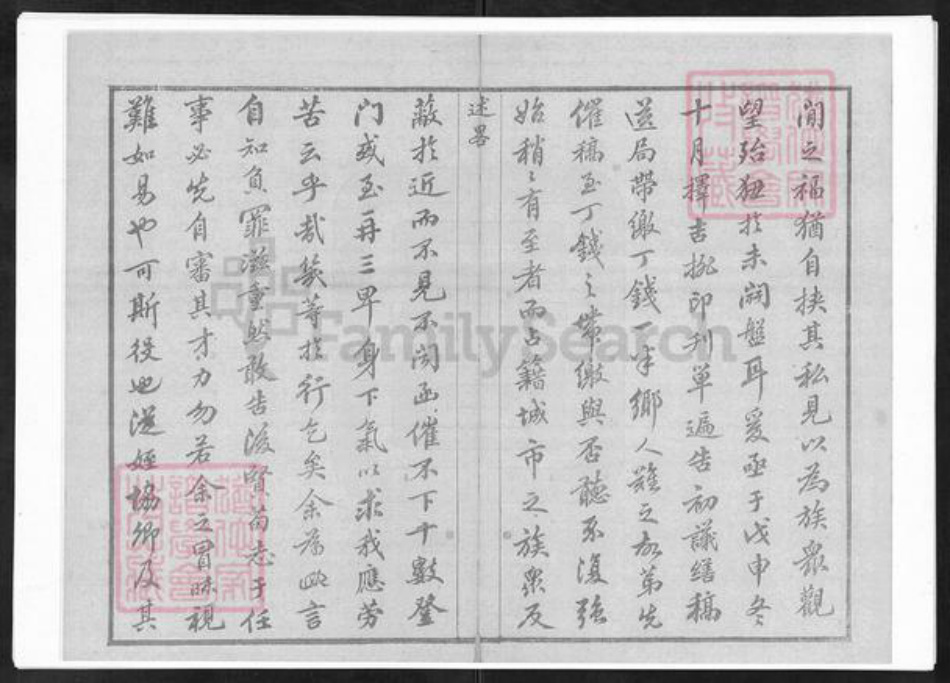 閒之福猶自挾其私見以為族眾觀
望殆狃於未開盤耳爰亟于戊申冬
十月擇吉抛印刊單遍告初議繕稿
送局帶繳丁錢一半鄉人難之故第先
催稿至丁錢之帶繳與否聽不復強
始稍〻有至者而占籍城市之族眾反
述畧
蔽於近而不見不聞函催不下十數登
門或至再三卑身下氣以求我應勞
苦云乎哉幾等於行乞矣余為此言
自知負罪滋重然敢告後賢苟志于任
事必先自審其才力勿若余之冒昧視
難如易也可斯役也從姪協卿及其
FamilySearch